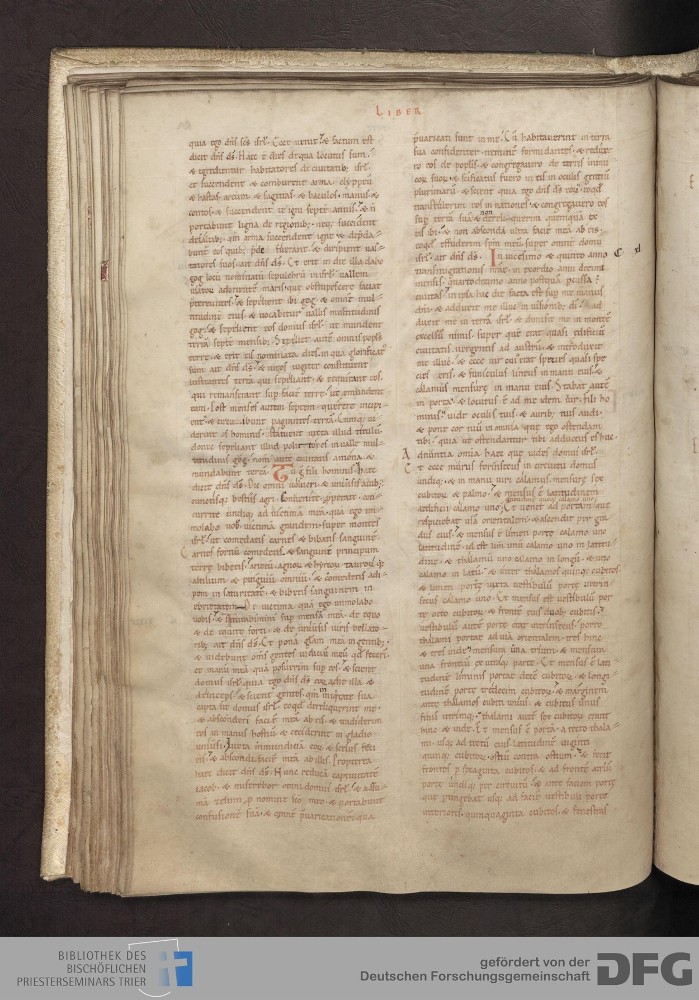 LIBER
quia ego dn̄s sc̄s isrł. Ecce uenit & factum est
dicit dn̄s ds̄. Hęc ē dies de qua locutus sum.
& egredientur habitatores de ciuitatib; isrł.
et succendent & comburent arma. clypeū
& hastas. arcum & sagittas. & baculos manus &
contos. & succendent in igni septē annis. & ñ
portabunt ligna de regionib; neq; succident
de saltib; qm̄ arma succendent igne & depda
bunt eos quib; pdę fuerant. & diripient uas
tatores suos. ait dn̄s ds̄. Et erit in die illa dabo
gog locū nominatū sepulchrū in isrł. uallem
uiatorū ad orientē maris. quę obstupescere faciat
pretereuntes. & sepelient ibi gog & omnē mul
titudinē eius & uocabitur uallis multitudinis
gog. & sepelient eos domus isrł. ut mundent
terrā septē mensib; Sepeliet autē omnis popłs
terrę. & erit eis nominata dies. in qua glorificat
sum ait dn̄s ds̄. & uiros iugiter constituent
lustrantes terrā qui sepeliant. & requirant eos.
qui remanserant sup faciē terrę. ut emundent
eam. Post menses autem septem querere incipi
ent.
derint os hominis. statuent iuxta illud titulū.
donec sepeliant illud pollinctores in ualle mul
titudinis gog. Nom̄ autē ciuitatis amona. &
mundabunt terrā. Tu g̃ fili hominis. hęc
dicit dn̄s ds̄. Dic omni uolucri. & uniuersis auib;
cunctisq; bestiis agri. Conuenite. properate. con
currite undiq; ad uictimā meā. quā ego im
molabo uob. uictimā grandem. super montes
isrł. ut comedatis carnes & bibatis sanguinē.
Carnes fortiū comedetis. & sanguinē principum
terrę bibetis. arietū. agnoꝝ & hircoꝝ. tauroꝝ q;
altilium & pinguiū omniū. & comedetis adi
pem in saturitatē. & bibetis sanguinem in
ebrietatem. De uictima quā ego immolabo
uobis. & saturabimini sup mensā meā. de equo
& de equite forti. & de uniuersis uiris bellato
rib; ait dn̄s ds̄. Et ponā głam meā in gentib;
& uidebunt om̄s gentes iudiciū meū qd̄ fecerī
et manū meā quā posuerim sup eos. & scient
domus isrł. quia ego dn̄s ds̄ eoꝝ a die illa &
deinceps. & scient gentes. qm̄ in iniqtate sua
capta sit domus isrł. eo qd̄ dereliquerint me.
& absconderi faciē meā ab eis & tradiderim
eos in manus hostiū & ceciderint in gladio
uniuersi. Iuxta immundiciā eoꝝ & scelus feci
eis. & abscondi faciē meā ab illis. Propterea
hęc dicit dn̄s ds̄. Nunc reducā captiuitatē
iacob. & miserebor omni domui isrł. & assu
mā zelum p nomine sc̄o meo. & portabunt
confusionē suā. & omnē pręuaricationē qua
pręuaricati sunt in me. Cū habitauerint in terra
sua confidenter. neminē formidantes. & reduxe
ro eos de poplis. & congregauero de terris inimi
coꝝ suoꝝ. & scificatus fuero in eis in oculis gentiū
plurimarū. & scient quia ego dn̄s ds̄ eoꝝ. eo qd̄
transtulerim eos in nationes. & congregauero eos
sup terrā suā. & non derelinquerim quemquā ex
eis ibi. & non abscondā ultra faciē meā ab eis.
eo qd̄ effuderim spm̄ meū super omnē domū
isrł. ait dn̄s ds̄. In uicesimo & quinto anno
transmigrationis nrę. in exordio anni decima
mensis. quartodecimo anno postquā pcussa ē
ciuitas. in ipsa hac die facta est sup me manus
dn̄i. & adduxit me illuc in uisionib; di. Ad
duxit me in terrā isrł. & dimisit me in monte
excelsū nimis. super quē erat quasi edificiū
ciuitatis uergentis ad austrū. & introduxit
me illuc. & ecce uir cui erat species quasi spe
cies ęris. & funiculus lineus in manu eius. &
calamus mensurę in manu eius. Stabat autē
in porta. & locutus ē ad me idem uir. fili ho
minis. uide oculis tuis. & aurib; tuis audi.
& pone cor tuū in omnia quę ego ostendam
tibi. quia ut ostendantur tibi adductus es huc.
Adnūntia omia hęc que uides domui isrł.
Et ecce murus forinsecus in circuitu domus
undiq; & in manu uiri calamus mensurę sex
cubitoꝝ & palmo. & mensus ē latitudinem
ędificii calamo uno. Et uenit ad portam quę
respiciebat uiā orientalem. & ascendit per gra
dus eius. & mensus ē limen portę calamo uno
latitudinē. id est limen unū calamo uno in latitu
dine. & thalamū uno calamo in longū. & uno
calamo in latū. & inter thalamos quinq; cubitos.
& limen portę iuxta uestibulū portę intrin
secus calamo uno. Et mensus est uestibulū por
tę octo cubitoꝝ. & frontē eius duob; cubitis.
uestibulū autē portę erat intrinsecus. porro
thalami portę ad uiā orientalem. tres hinc
& tres inde. mensura una trium. & mensura
una frontiū ex utraq; parte. Et mensus ē lati
tudinē liminis portę decē cubitoꝝ. & longi
tudinē portę tredecim cubitoꝝ. & marginem
ante thalamos cubiti unius. & cubitus unus
finis utrimq;. thalami autē sex cubitoꝝ erant
hinc & inde. Et mensus ē portā. a tecto thala
mi. usq; ad tectū eius. latitudinē uiginti
quinq; cubitoꝝ. ostiū contra ostium. & fecit
frontes p sexaginta cubitos. & ad frontē atriū
portę undiq; per circuitū. & ante faciem portę
quę pringebat usq; ad faciē uestibuli portę
interioris. quinquaginta cubitos. & fenestras
BIBLIOTHEK DES
BISCHÖFLICHEN
PRIESTERSEMINARS TRIER
gefördert von der
Deutschen Forschungsgemeinschaft
DFG